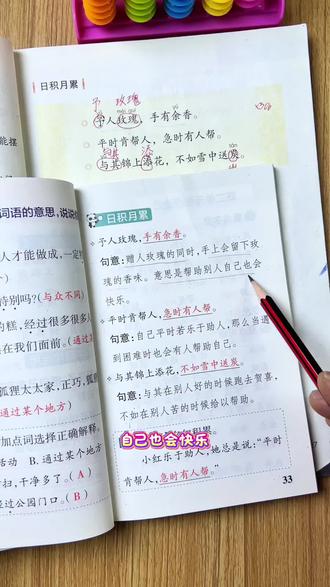 日积月累
予 玫瑰
予人玫瑰，手有余香。
平时肯帮人，急时有人帮。
与其 添
与其锦上添花，不如雪中送炭。
山
能摆
词语的意思，说说
人才能做成，一定
特别吗?(与众不同)
的糕，经过很多很多
在我们面前。(通过
狐狸太太家，正巧，狐
通过某个地方)
加点词选择正确解释。
活动 B.通过某个地方
扫，干净多了。( A )
经过公园门口。( B )
日积月累
予人玫瑰，手有余香。
句意：赠人玫瑰的同时，手上会留下玫
瑰的香味。意思是帮助别人自己也会
快乐。
平时肯帮人，急时有人帮。
句意：自己平时若乐于助人，那么当遇
到困难时也会有人帮助自己。
与其锦上添花，不如雪中送炭。
句意：与其在别人好的时候跑去贺喜，
不如在别人苦的时候给以帮助。
自己也会快乐
小红乐于助人，她总是说：“平时
肯帮人，急时有人帮。”
33